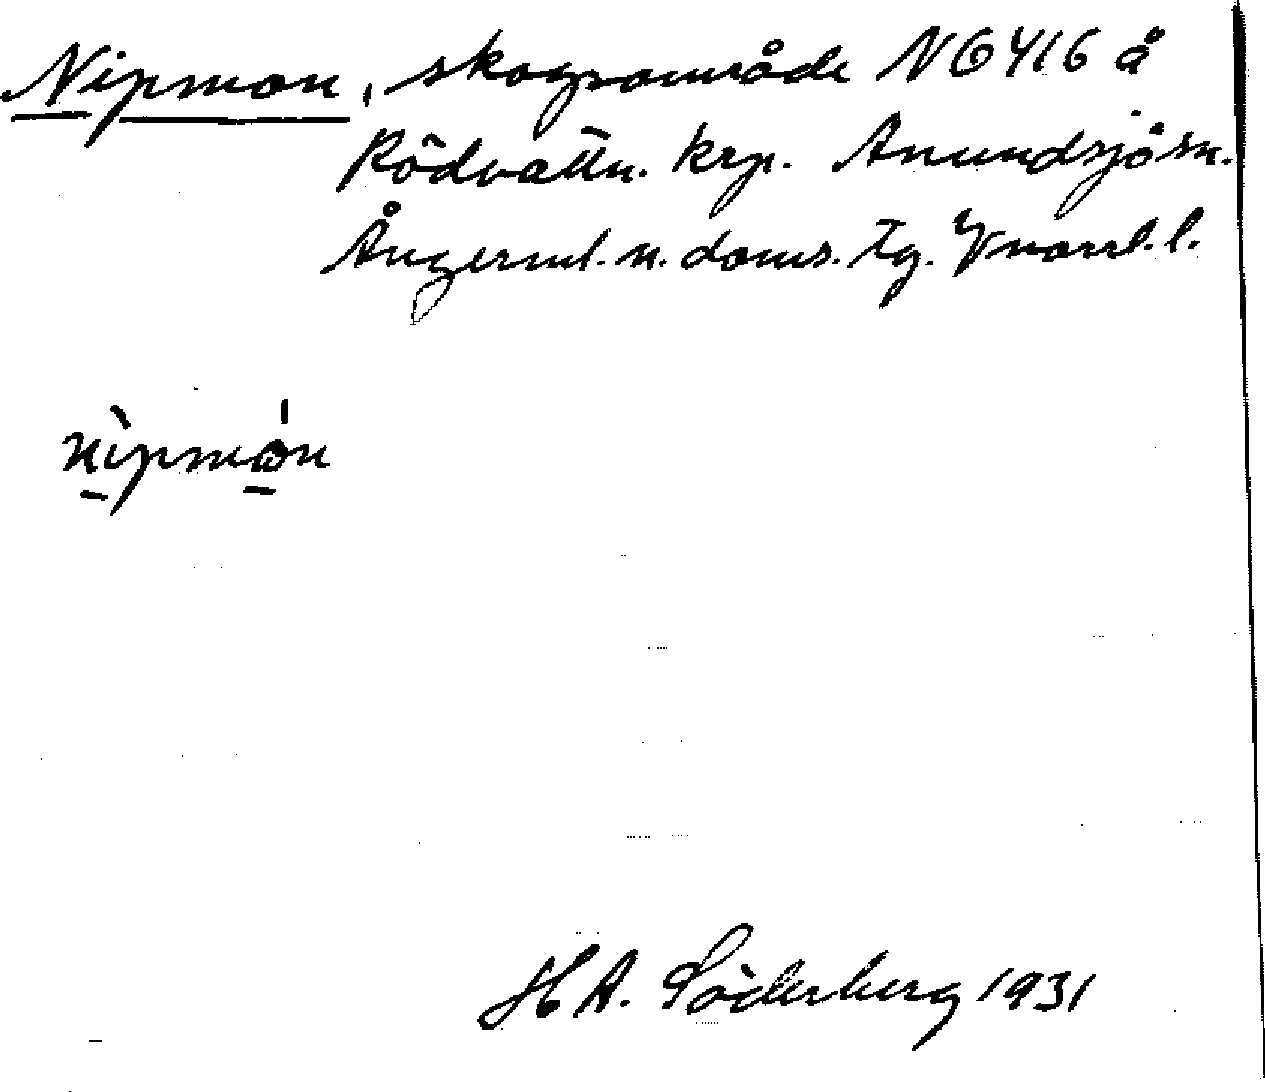 Nipmon, skogsområde NGYIG å
Rödvattn. krp. Anundsjösn.
Ångerml. n. doms. tg. Vnorrl. l.
nìpmo̍n
H A. Söderberg 1931